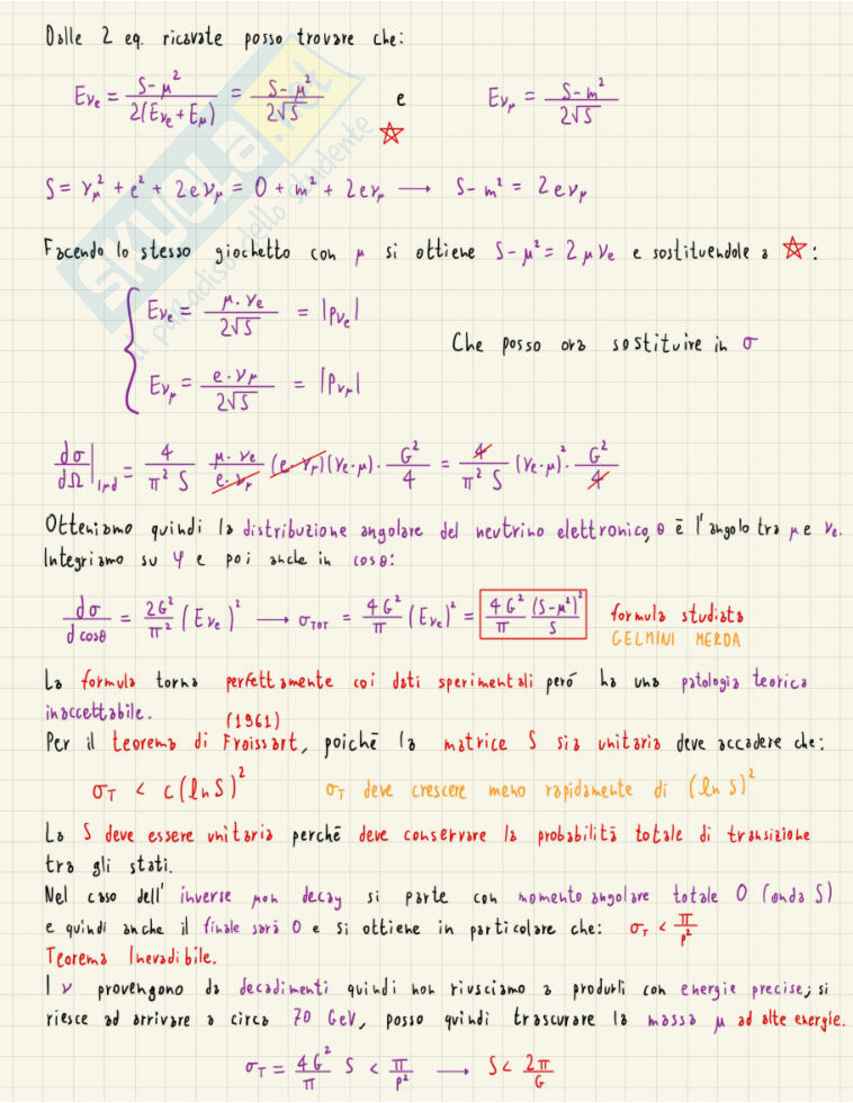 Dalle 2 eq. ricavate posso trovare che:
Eνe = S-μ² / 2(Eνe + Eμ) = S-μ² / 2√S e Eνμ = S-m² / 2√S
☆
S = νμ² + e² + 2eνμ = 0 + m² + 2eνμ ⟶ S-m² = 2eνμ
Facendo lo stesso giochetto con μ si ottiene S-μ² = 2μνe e sostituendole a ☆:
Eνe = μ·νe / 2√S = |pνe|
Che posso ora sostituire in σ
Eνμ = e·νμ / 2√S = |pνμ|
dσ/dΩ|IMD = 4/π²S μ·νe/e·νμ (e·νμ)(νe·μ)· G²/4 = 4/π²S (νe·μ)²· G²/4
Otteniamo quindi la distribuzione angolare del neutrino elettronico, θ è l'angolo tra μ e νe.
Integriamo su φ e poi anche in cosθ:
dσ/dcosθ = 2G²/π² (Eνe)² ⟶ σTOT = 4G²/π (Eνe)² = 4G²/π (S-μ²)²/S formula studiata
GELMINI MERDA
La formula torna perfettamente coi dati sperimentali però ha una patologia teorica
inaccettabile.
(1961)
Per il teorema di Froissart, poiché la matrice S sia unitaria deve accadere che:
σT < c(lnS)² σT deve crescere meno rapidamente di (ln S)²
La S deve essere unitaria perché deve conservare la probabilità totale di transizione
tra gli stati.
Nel caso dell' inverse muon decay si parte con momento angolare totale 0 (onda S)
e quindi anche il finale sarà 0 e si ottiene in particolare che: σT < π/p²
Teorema Inevadibile.
I ν provengono da decadimenti quindi non riusciamo a produrli con energie precise; si
riesce ad arrivare a circa 70 GeV, posso quindi trascurare la massa μ ad alte energie.
σT = 4G²/π S < π/p² ⟶ S < 2π/G
SKUOLA.net
il paradiso dello studente